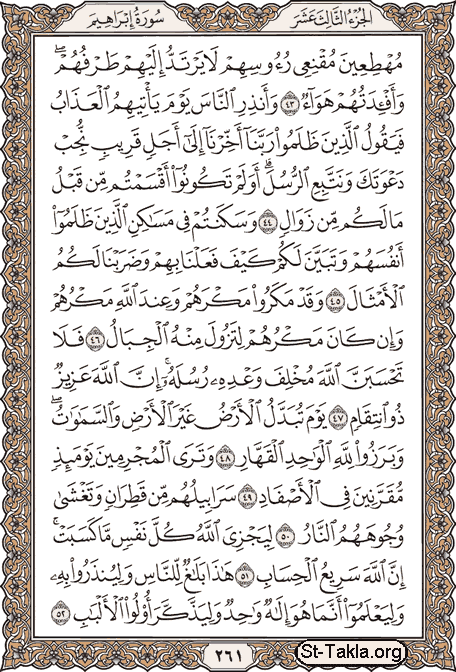 الجزء الثالث عشر
سورة إبراهيم
مُهْطِعِينَ مُقْنِعِي رُءُوسِهِمْ لَا يَرْتَدُّ إِلَيْهِمْ طَرْفُهُمْ ۖ
وَأَفْـِٔدَتُهُمْ هَوَآءٌ ٤٣ وَأَنذِرِ ٱلنَّاسَ يَوْمَ يَأْتِيهِمُ ٱلْعَذَابُ
فَيَقُولُ ٱلَّذِينَ ظَلَمُوا۟ رَبَّنَآ أَخِّرْنَآ إِلَىٰٓ أَجَلٍ قَرِيبٍ نُّجِبْ
دَعْوَتَكَ وَنَتَّبِعِ ٱلرُّسُلَ ۗ أَوَلَمْ تَكُونُوٓا۟ أَقْسَمْتُم مِّن قَبْلُ
مَا لَكُم مِّن زَوَالٍ ٤٤ وَسَكَنتُمْ فِى مَسَٰكِنِ ٱلَّذِينَ ظَلَمُوٓا۟
أَنفُسَهُمْ وَتَبَيَّنَ لَكُمْ كَيْفَ فَعَلْنَا بِهِمْ وَضَرَبْنَا لَكُمُ
ٱلْأَمْثَالَ ٤٥ وَقَدْ مَكَرُوا۟ مَكْرَهُمْ وَعِندَ ٱللَّهِ مَكْرُهُمْ
وَإِن كَانَ مَكْرُهُمْ لِتَزُولَ مِنْهُ ٱلْجِبَالُ ٤٦ فَلَا
تَحْسَبَنَّ ٱللَّهَ مُخْلِفَ وَعْدِهِۦ رُسُلَهُۥٓ ۗ إِنَّ ٱللَّهَ عَزِيزٌ
ذُو ٱنتِقَامٍ ٤٧ يَوْمَ تُبَدَّلُ ٱلْأَرْضُ غَيْرَ ٱلْأَرْضِ وَٱلسَّمَٰوَٰتُ ۖ
وَبَرَزُوا۟ لِلَّهِ ٱلْوَٰحِدِ ٱلْقَهَّارِ ٤٨ وَتَرَى ٱلْمُجْرِمِينَ يَوْمَئِذٍ
مُّقَرَّنِينَ فِى ٱلْأَصْفَادِ ٤٩ سَرَابِيلُهُم مِّن قَطِرَانٍ وَتَغْشَىٰ
وُجُوهَهُمُ ٱلنَّارُ ٥٠ لِيَجْزِىَ ٱللَّهُ كُلَّ نَفْسٍ مَّا كَسَبَتْ ۚ
إِنَّ ٱللَّهَ سَرِيعُ ٱلْحِسَابِ ٥١ هَٰذَا بَلَٰغٌ لِّلنَّاسِ وَلِيُنذَرُوا۟ بِهِۦ
وَلِيَعْلَمُوٓا۟ أَنَّمَا هُوَ إِلَٰهٌ وَٰحِدٌ وَلِيَذَّكَّرَ أُو۟لُوا۟ ٱلْأَلْبَٰبِ ٥٢
٢٦١
St-Takla.org